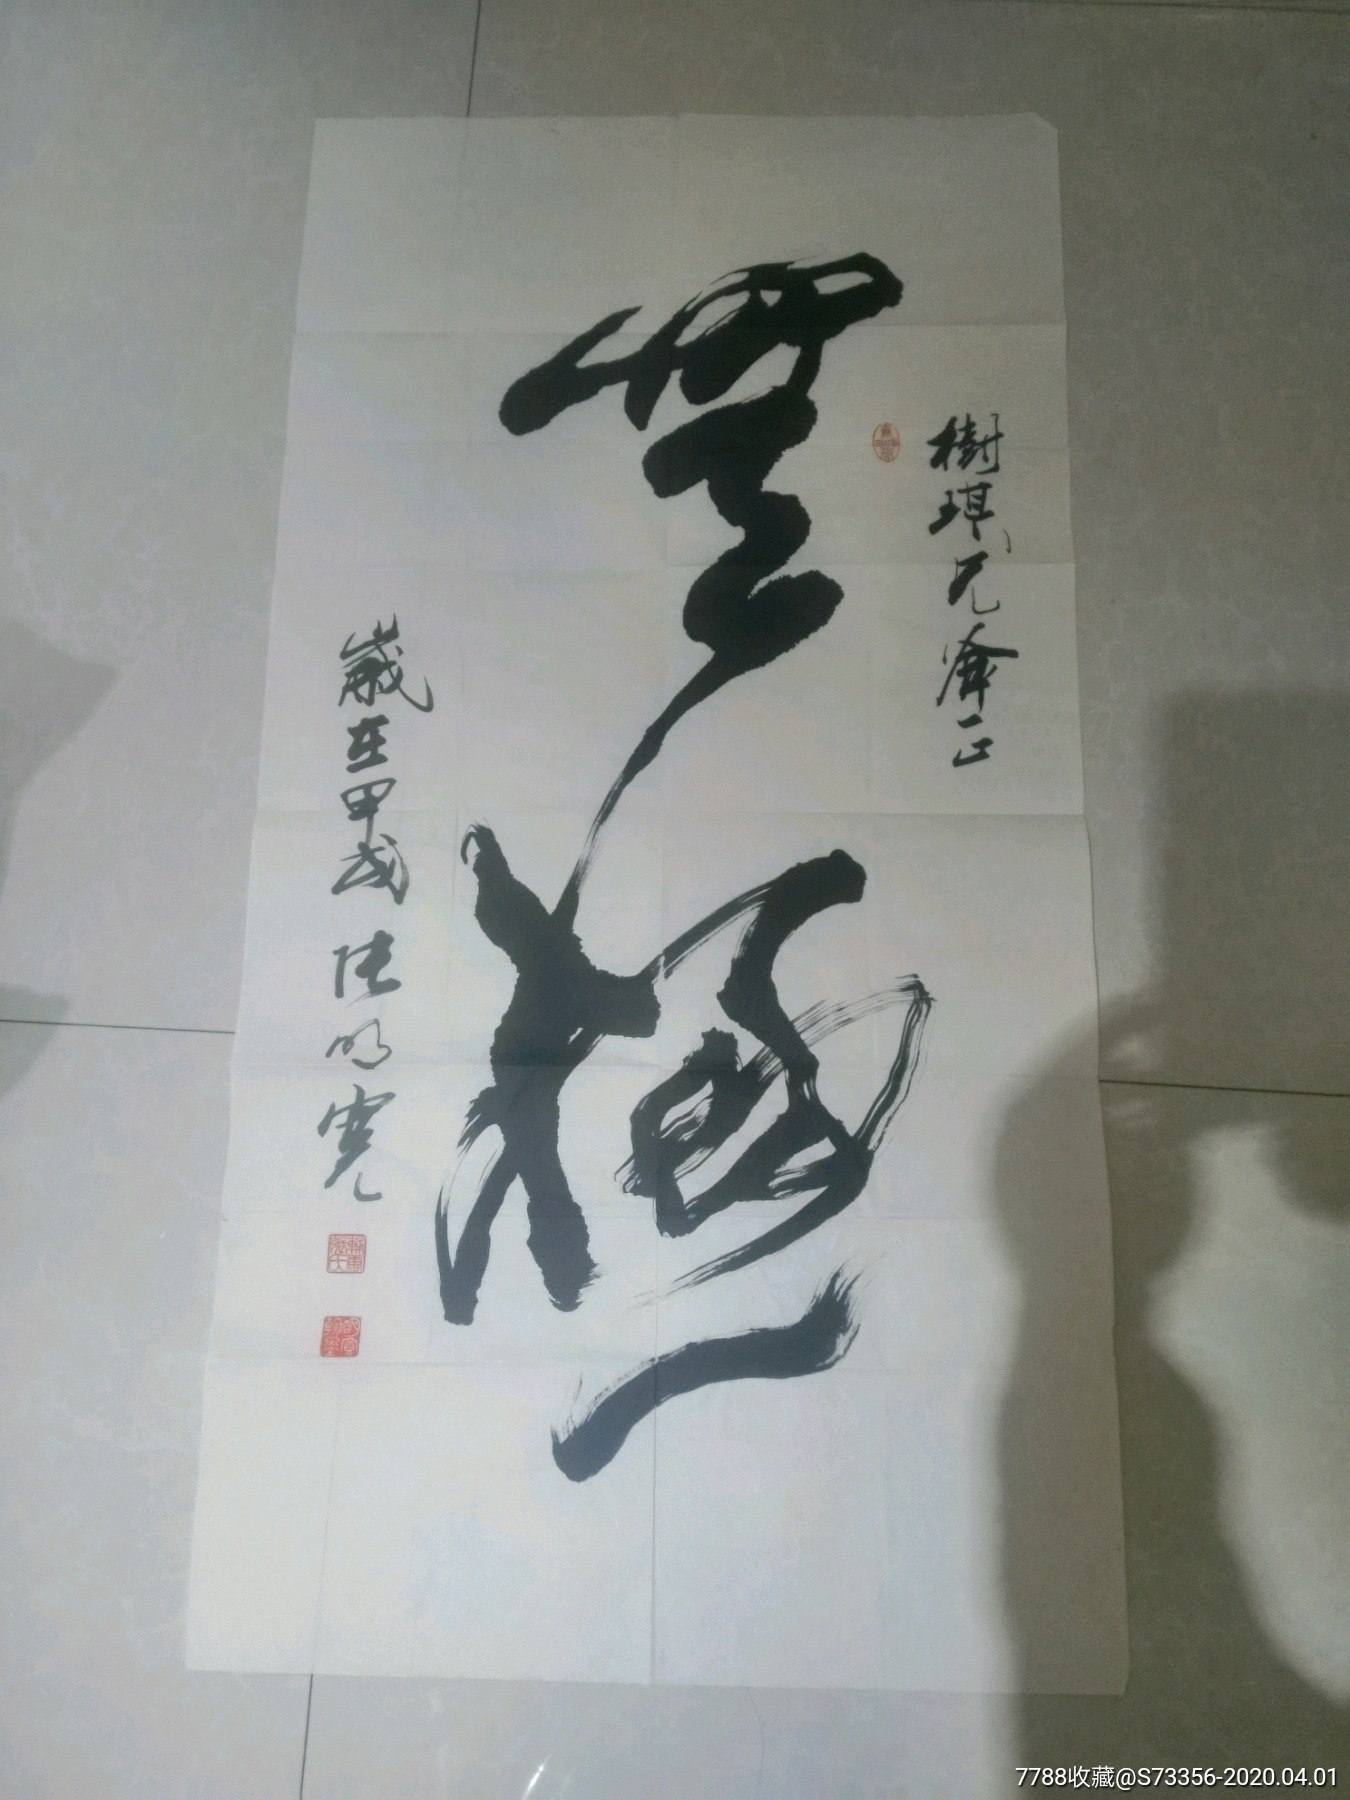 樹琪兄齋正
無極
歲在甲戌 張明寬
7788收藏@S73356-2020.04.01